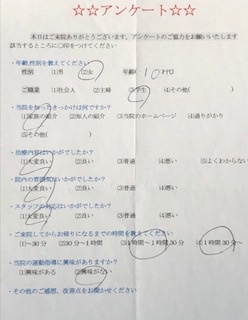 ☆☆アンケート☆☆
本日はご来院ありがとうございます。アンケートのご協力をお願いいたします
該当するところに○印をつけてください
・年齢,性別を教えてください
性別 (1)男 (2)女 年齢( 10代 )
ご職業 (1)社会人 (2)主婦 (3)学生 (4)その他( )
・当院を知ったきっかけは何ですか?
(1)家族の紹介 (2)知人の紹介 (3)当院のホームページ (4)通りがかり
(5)その他( )
・治療内容はいかがでしたか?
(1)大変良い (2)良い (3)普通 (4)悪い (5)よくわからない
・院内の雰囲気はいかがでしたか?
(1)大変良い (2)良い (3)普通 (4)悪い
・スタッフの対応はいかがでしたか?
(1)大変良い (2)良い (3)普通 (4)悪い
・ご来院してからお帰りになるまでの時間を教えてください
(1)~30分 (2)30分~1時間 (3)1時間~1時間30分 (4)1時間30分~
・当院の運動指導に興味がありますか?
(1)興味がある (2)興味がない
・その他のご感想、改善点をお聞かせください